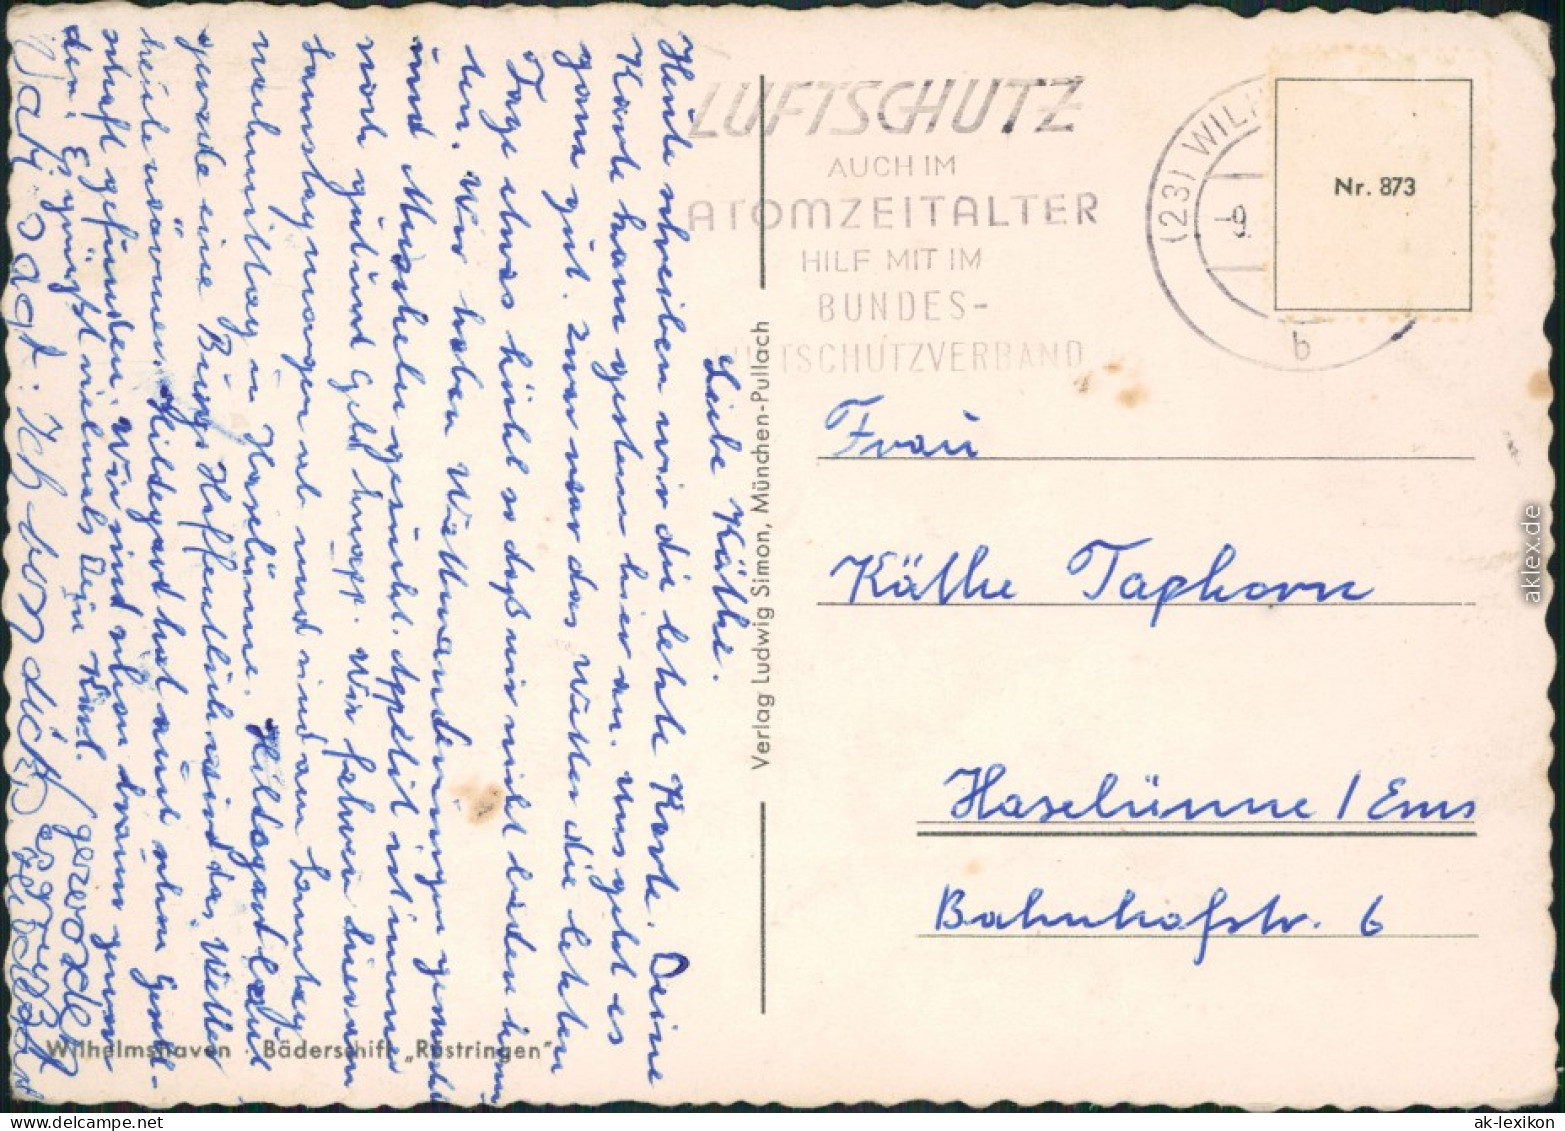 LUFTSCHUTZ
AUCH IM
ATOMZEITALTER
HILF MIT IM
BUNDES-
LUFTSCHUTZVERBAND
(23) WILH
-9.
b
Nr. 873
Frau
Käthe Taphorn
Haselünne / Ems
Bahnhofstr. 6
Verlag Ludwig Simon, München-Pullach
Wilhelmshaven · Bäderschiff „Rüstringen"
Liebe Käthe.
Heute schreiben wir die letzte Karte. Deine
Karte kam gestern hier an. Uns geht es
ganz gut. Zwar war das Wetter die letzten
Tage etwas kühl so daß wir nicht baden konn-
ten. Wir haben Wattwanderungen gemacht
und Muscheln gesucht. Appetit ist immer
noch gut und Geld knapp. Wir fahren hier am
Samstagmorgen ab und sind am Sonntag
nachmittag in Haselünne. Hildegard
gerade eine Burg. Hoffentlich wird das Wetter
Hildegard hat auch schon Gesell-
schaft gefunden. Wir sind schon braun gewor-
den. Es grüßt vielmals Dein Karl.
sagt: Ich
dich
aklex.de
ak-lexikon